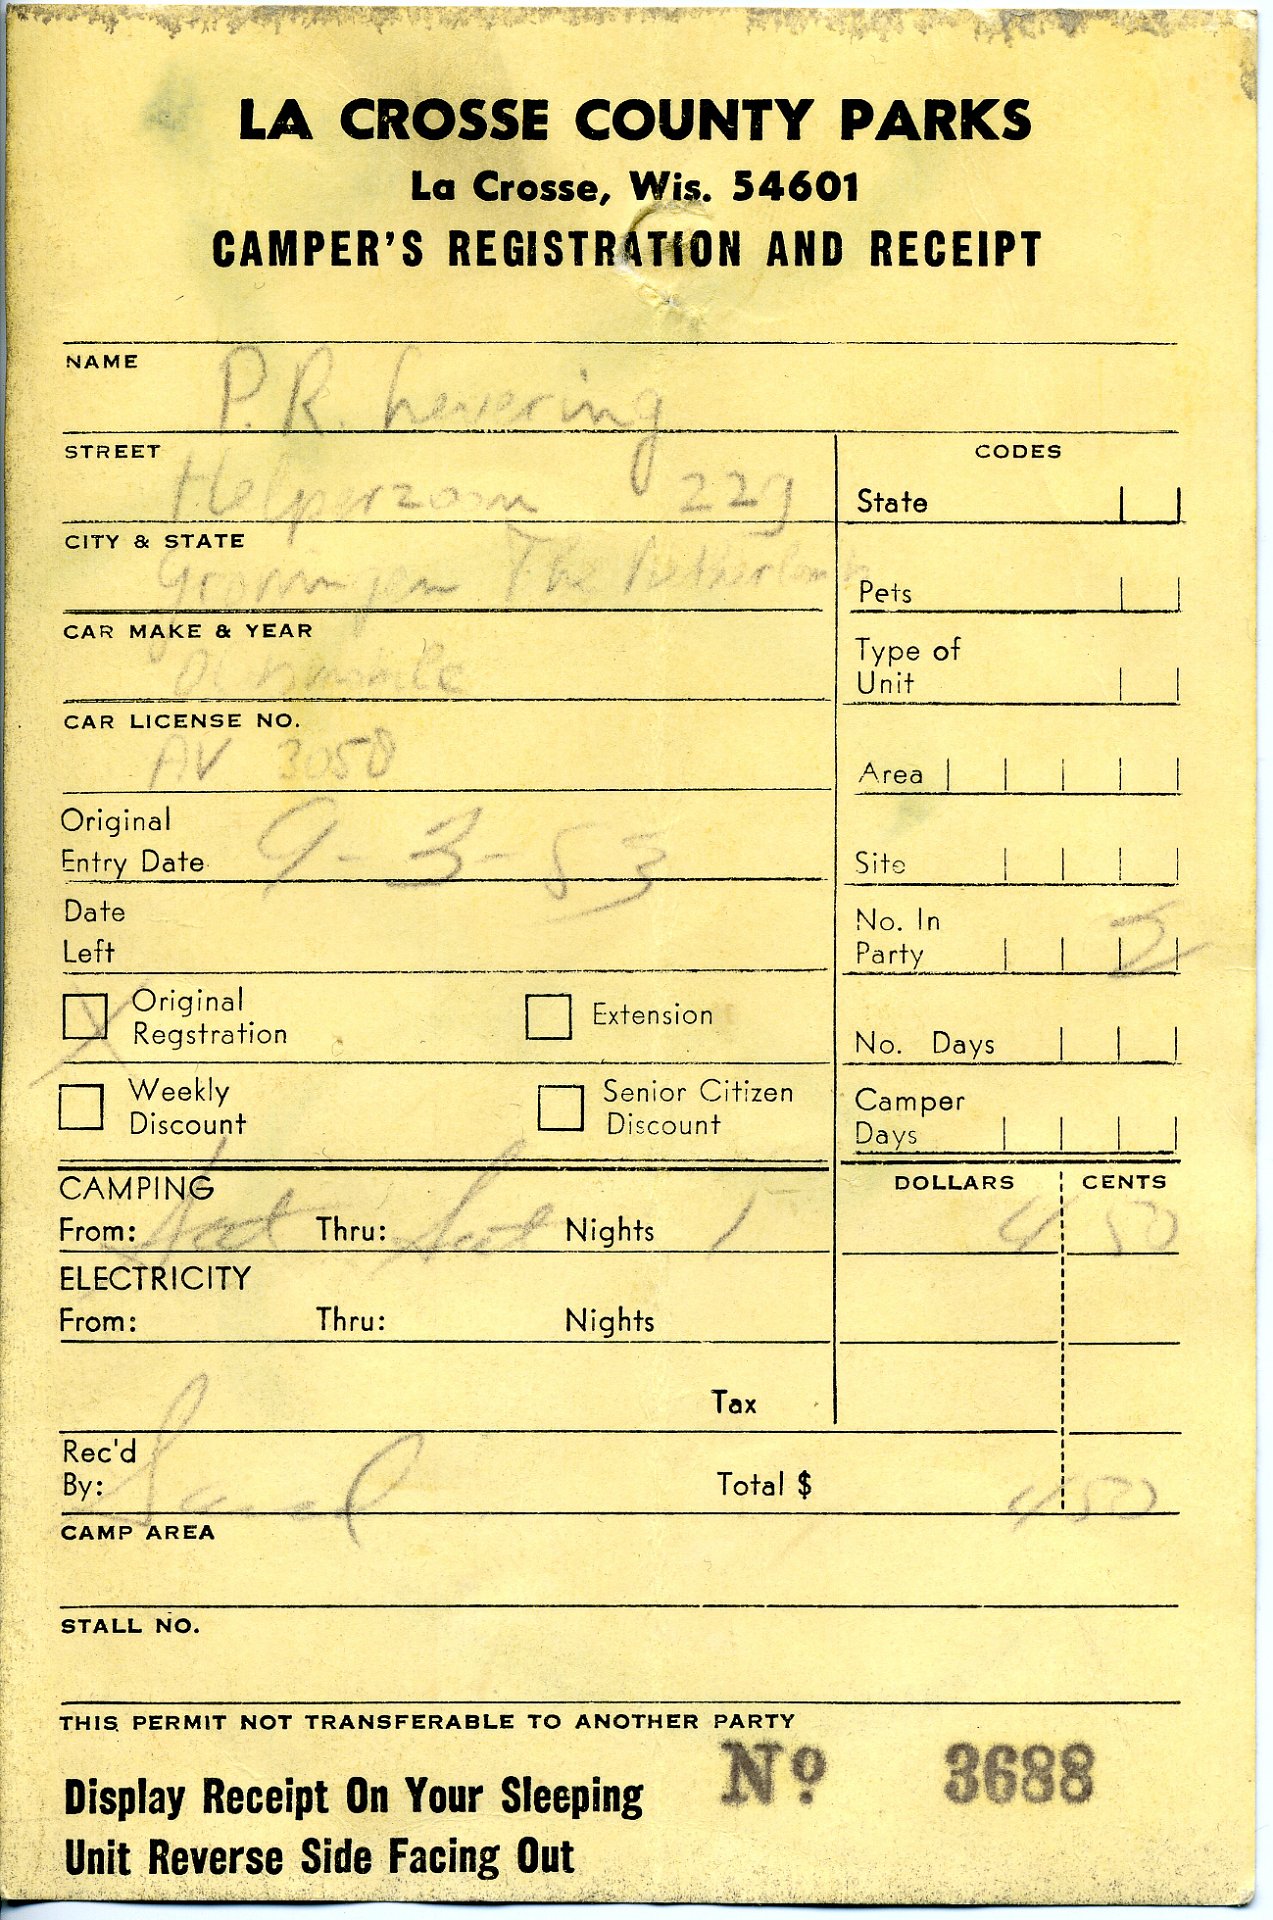 LA CROSSE COUNTY PARKS
La Crosse, Wis. 54601
CAMPER'S REGISTRATION AND RECEIPT
NAME
P.R. Levering
STREET
Helperzoom 229
CITY & STATE
Groningen The Netherlands
CAR MAKE & YEAR
CAR LICENSE NO.
AV 3058
Original
Entry Date 9-3-83
Date
Left
Original
Regstration
Extension
Weekly
Discount
Senior Citizen
Discount
CODES
State
Pets
Type of
Unit
Area
Site
No. In
Party 2
No. Days
Camper
Days
DOLLARS CENTS
CAMPING
From: Sat Thru: Nights 1 4 50
ELECTRICITY
From: Thru: Nights
Tax
Rec'd
By:
Total $ 4 50
CAMP AREA
STALL NO.
THIS PERMIT NOT TRANSFERABLE TO ANOTHER PARTY
Display Receipt On Your Sleeping
Unit Reverse Side Facing Out
No 3688